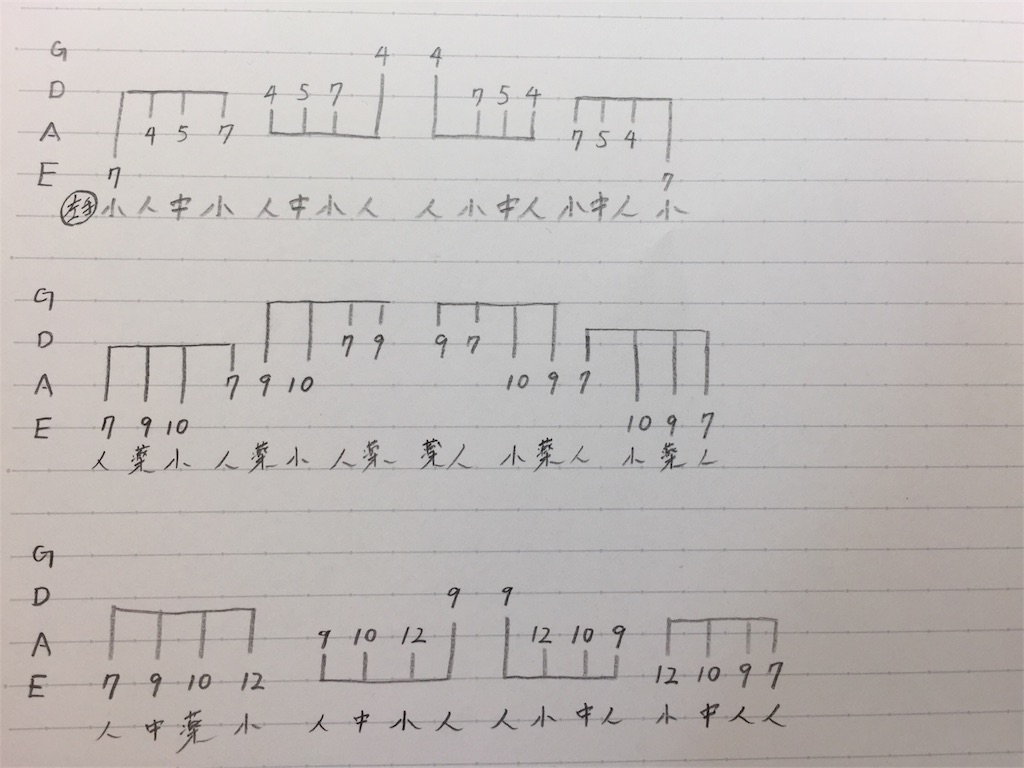 G 4 4
D 4 5 7 7 5 4
A 4 5 7 7 5 4
E 7 7
左手 小 人 中 小 人 中 小 人 人 小 中 人 小 中 人 小
G
D 7 9 9 7
A 7 9 10 10 9 7
E 7 9 10 10 9 7
人 薬 小 人 薬 小 人 薬 薬 人 小 薬 人 小 薬 人
G
D 9 9
A 9 10 12 12 10 9
E 7 9 10 12 12 10 9 7
人 中 薬 小 人 中 小 人 人 小 中 人 小 中 人 人